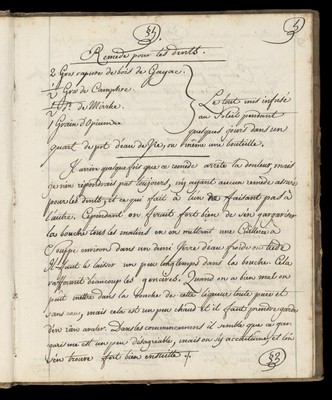 §1
5
Remede pour les dents.
2 Gros rapure de bois de Gayac.
1/2 Gros de Camphre.
1/2 de
1 Grain d'Opium
Le tout mis infusé
au Soleil pendant
quelques jours dans un
quart de pot d'eau de Vie, ou même une bouteille.
Il arrive quelque fois que ce remede arrête la douleur, mais
je n'en répondrais pas toujours, n'y ayant aucun remede assuré
pour les dents, et ce qui fait à l'un ne faisant pas à
l'autre. Cependant on feroit fort bien de s'en gargariser
la bouche tous les matins en en mettant une Cuilliere à
Soupe environ dans un demi Verre d'eau froide ou tiede
Il faut le laisser un peu longtemps dans la bouche. Cela
raffermit beaucoup les gencives. Quand on a bien mal on
peut mettre dans la bouche de cette liqueur toute pure et
sans eau, mais cela est un peu chaud et il faut prendre garde
d'en rien avaler. Dans les commencemens il semble que ce gar-
garisme est un peu désagréable, mais on s'y accoutume et l'on
s'en trouve fort bien ensuite
§2